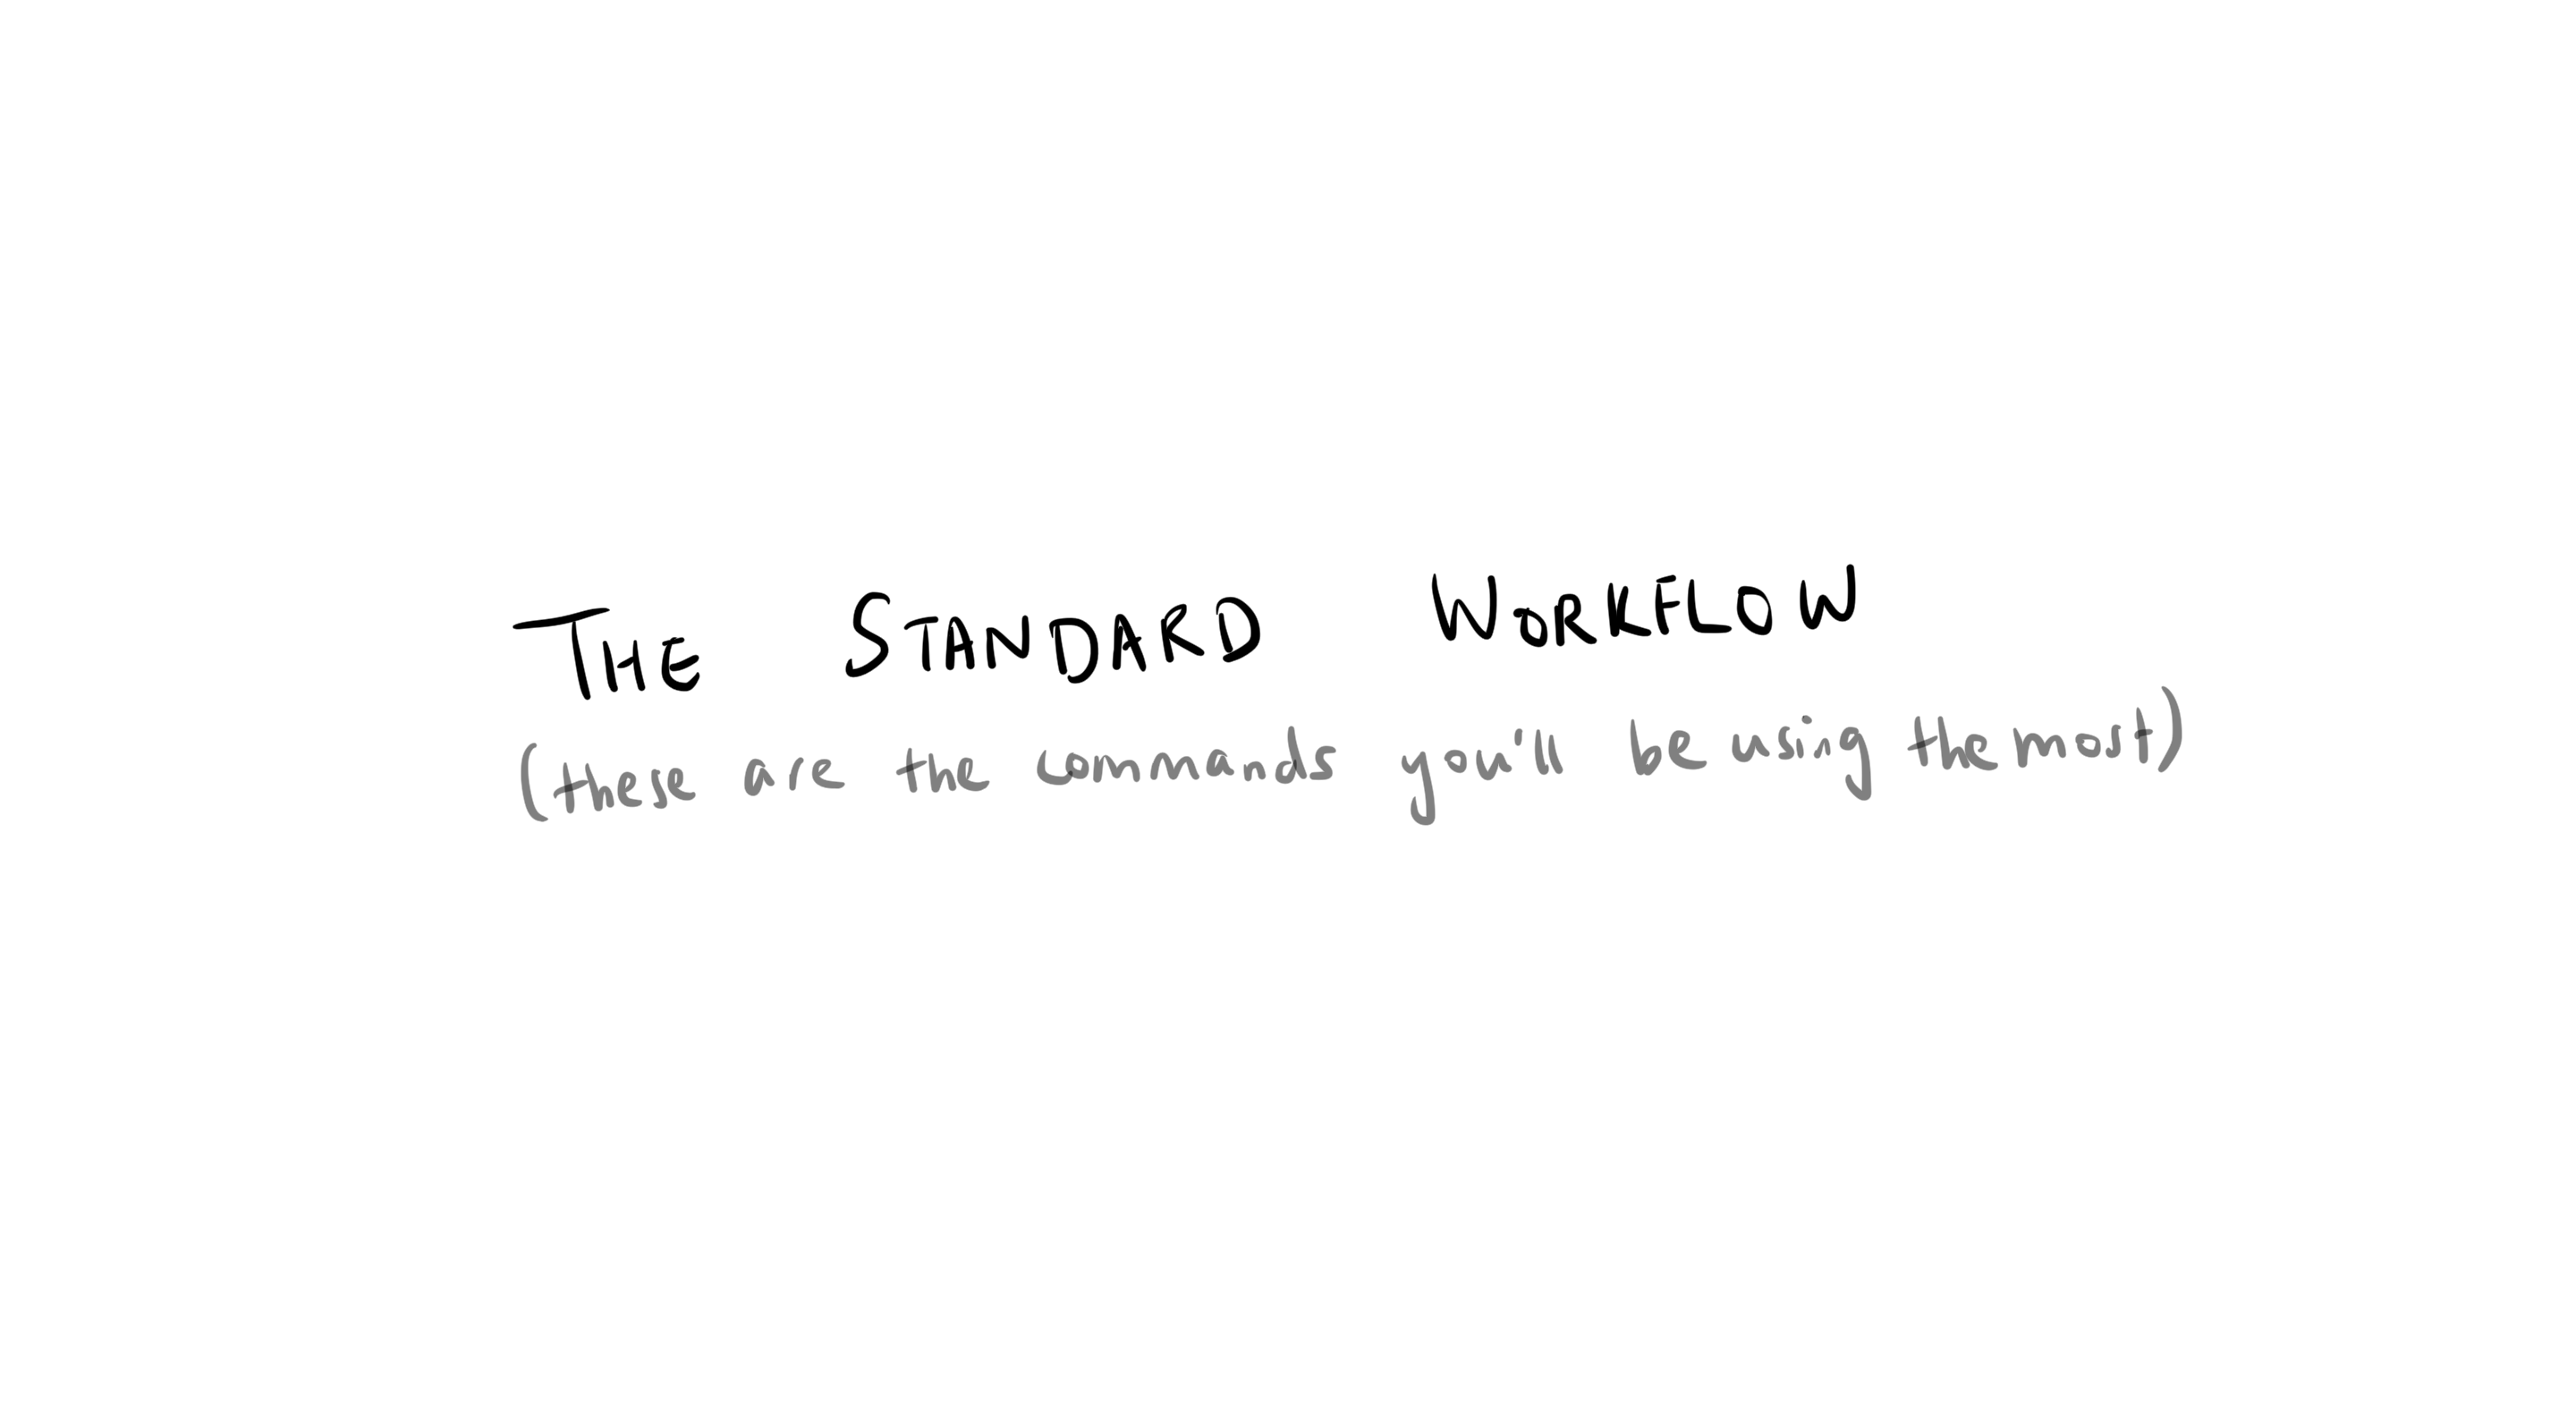 THE STANDARD WORKFLOW
(these are the commands you'll be using the most)